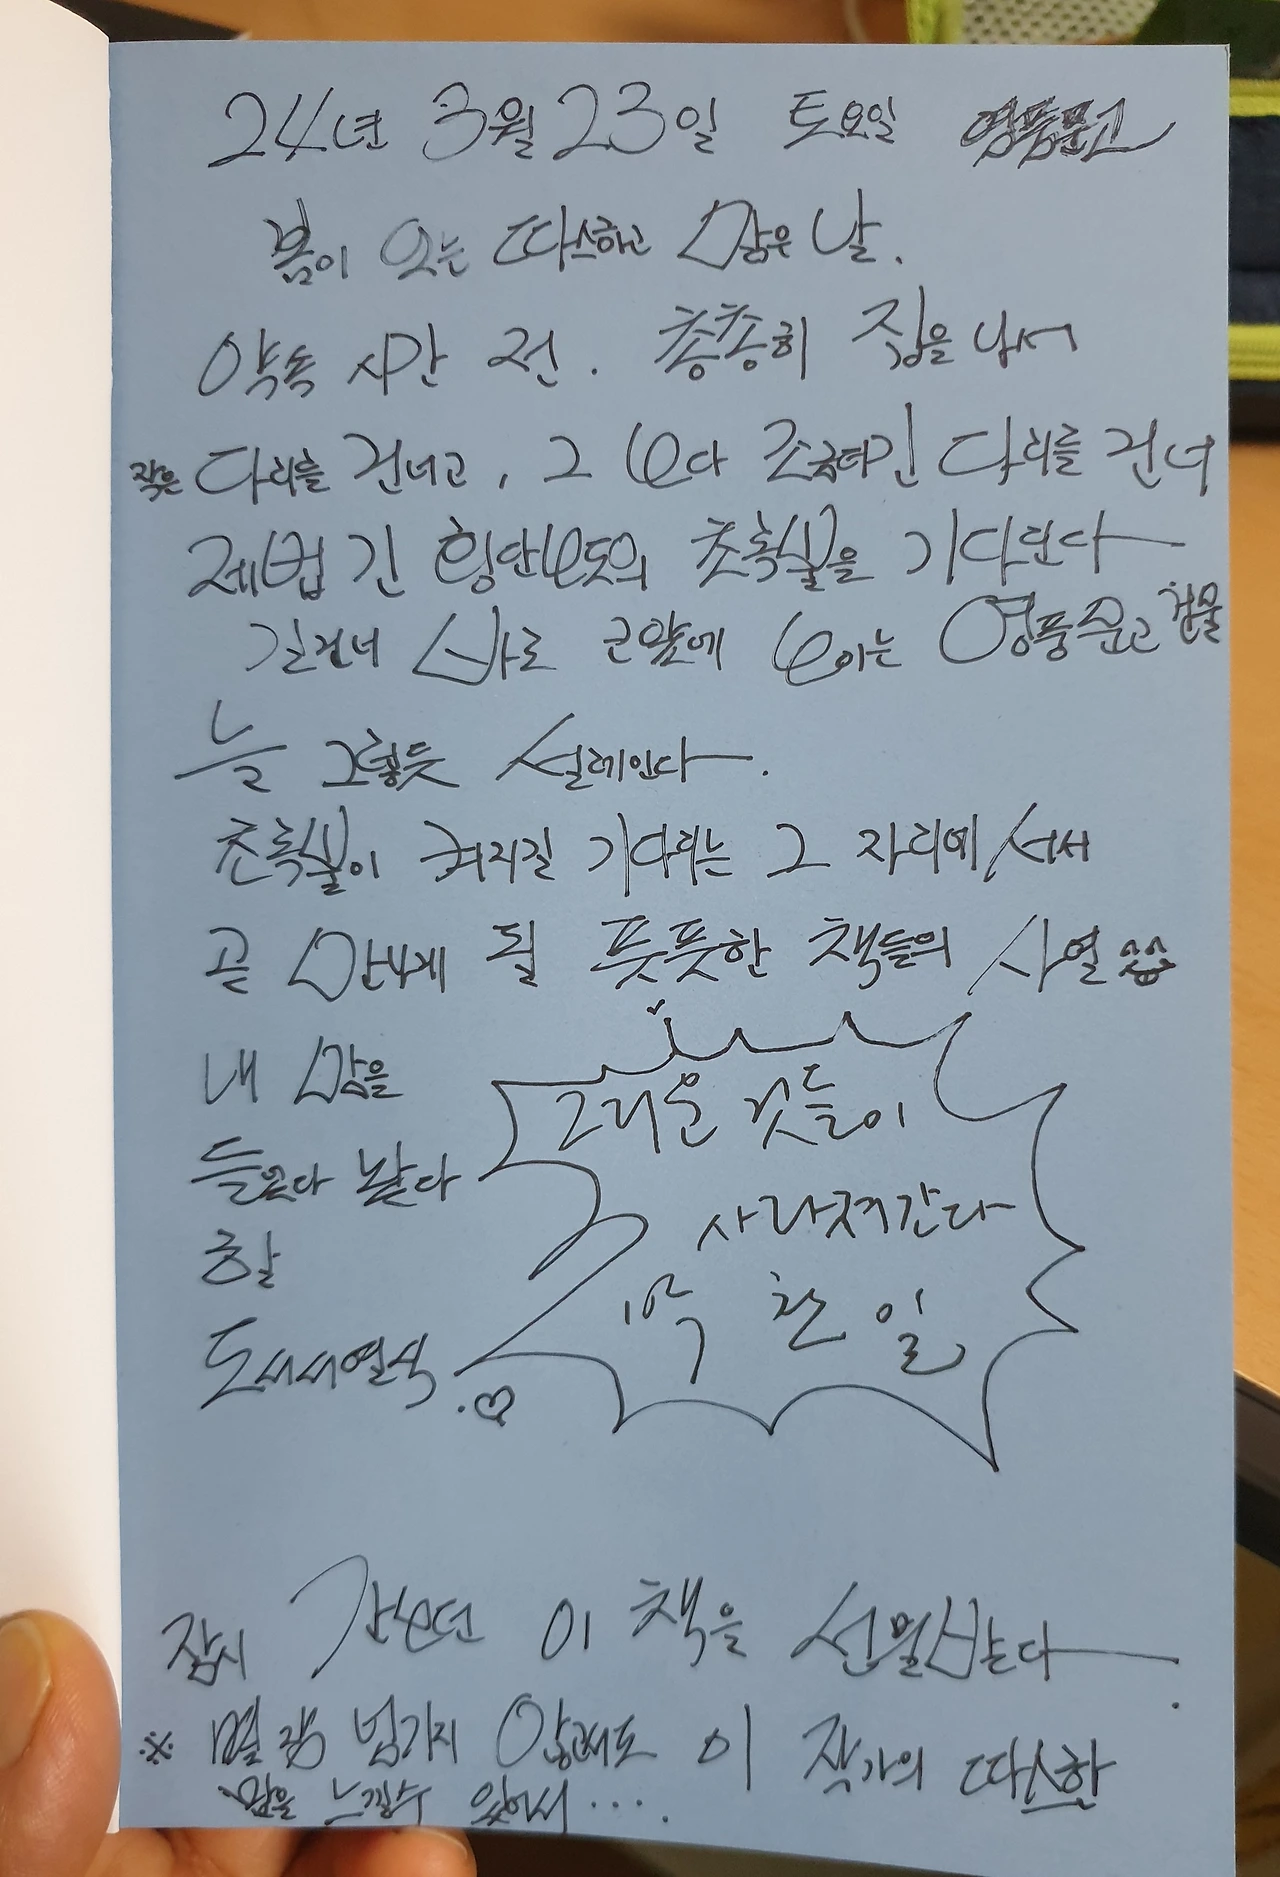 24년 3월 23일 토요일 영풍문고
봄이 오는 따스하고 맑은 날.
약속 시간 전. 총총히 집을 나서
작은 다리를 건너고, 그 보다 조금 더 긴 다리를 건너
제법 긴 횡단보도의 초록불을 기다린다
길 건너 바로 코앞에 보이는 영풍문고 건물
늘 그렇듯 설레인다.
초록불이 켜지길 기다리는 그 자리에 서서
곧 만나게 될 풋풋한 책들의 사열
내 맘을
들었다 놨다
할
도서사열식.♡
그리운 것들이
사라져간다
박 찬 일
잠시 간 보던 이 책을 선물받는다.
※ 몇 장 넘기지 않았는데도 이 작가의 따스한
맘을 느낄 수 있어서....